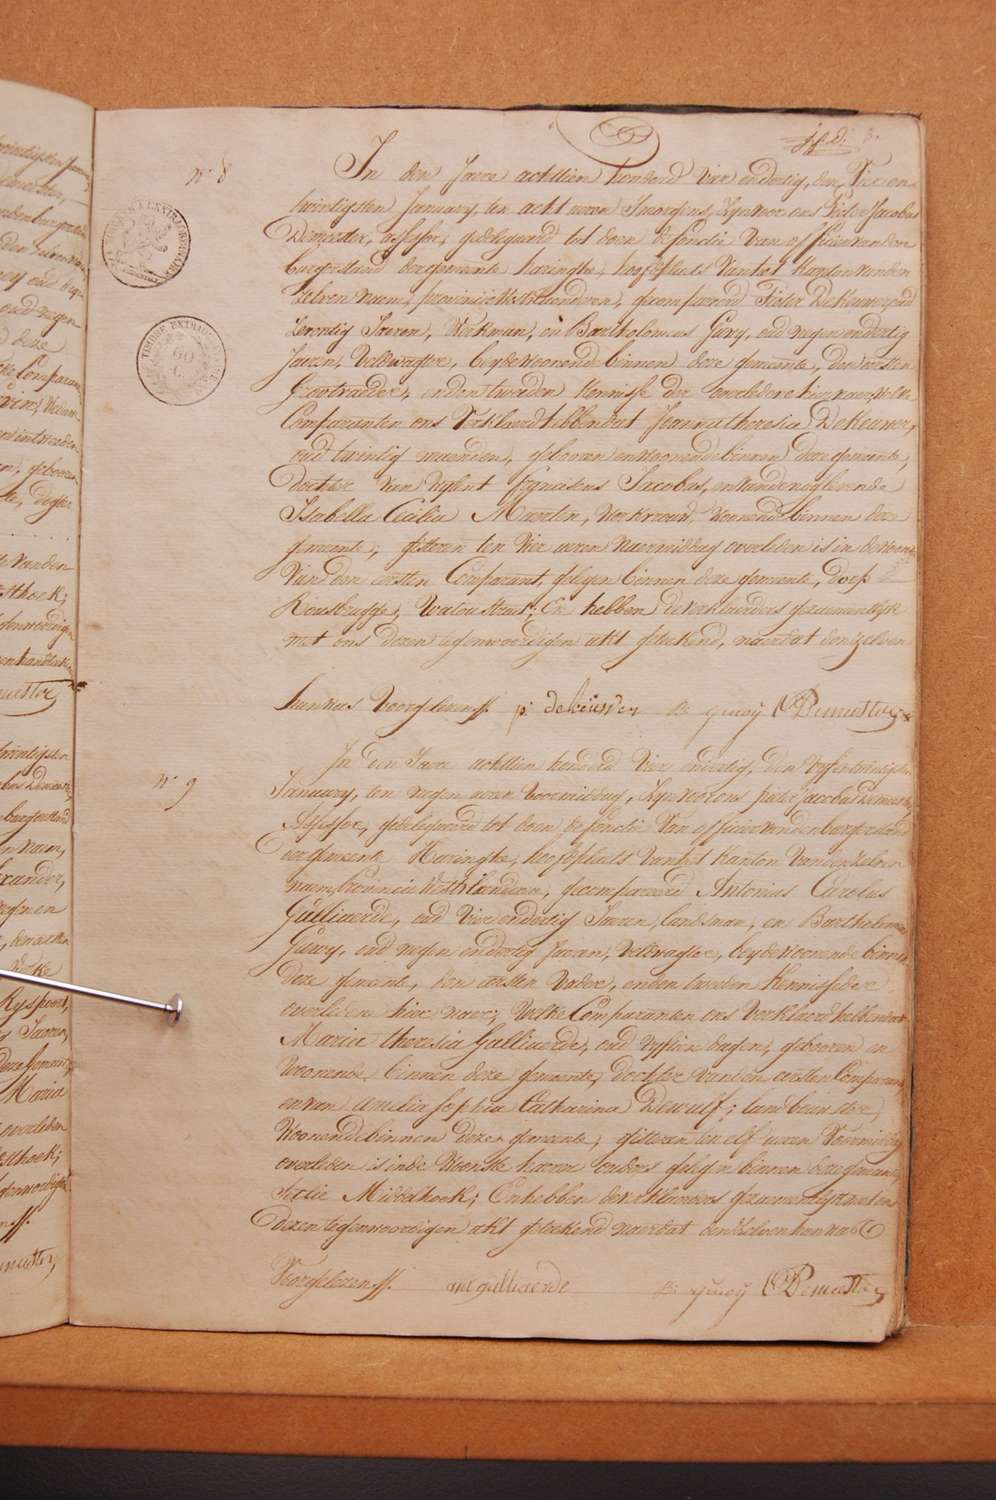 3.
N.º 8
In den Jaere achttien honderd vier en dertig, den Vier en
twintigsten January, ten acht uren Smorgens, Zyn voor ons Pieter Jacobus
Demeester, assessor, gedelegeerd tot doen de functie van officier van den
burgerstand der gemeente haringhe, hoofdplaets van het Kanton van den
zelven naem, provincie Westvlaenderen, gecompareerd Pieter DeKeuwer, oud
zeventig Jaeren, Werkman, en Bartholomeus Gwy, oud negen en dertig
Jaeren, Veldwagter, beyde woonende binnen deze gemeente, den eersten
Grootvaeder, en den tweeden Kennisse der overledene hier naer, welke
Comparanten ons Verklaerd hebben dat Joanna theresia DeKeuwer,
oud twintig maenden, geboren en woonende binnen deze gemeente,
dochter van wylent franciscus Jacobus, en van de nog levende
Isabella Cecilia Martin, Werkvrouw, woonende binnen deze
gemeente, gisteren ten vier uren naermiddag overleden is in de woonst
van den eersten Comparant, gelegen binnen deze gemeente, dorp
Rousbrugge, Watoustraet; En hebben de verklaerders gezaementlyk
met ons dezen tegenwoordigen akt geteekend, naer dat den zelven
hun was voorgelezen.
p: dekeuwer B: gwy PDemeester
N.º 9
In den Jaere achttien honderd vier en dertig, den vyfentwintigsten
January, ten negen uren voormiddag, Zyn voor ons pieter Jacobus Demeester
Assessor, gedelegeerd tot doen de functie van officier van den burgerstand
der gemeente Haringhe, hoofdplaets van het Kanton van den zelven
naem, Provincie Westvlaenderen, gecompareerd Antonius Carolus
Galliaerde, oud vier en dertig Jaeren, landsman, en Bartholomeus
Guwy, oud negen en dertig Jaeren, Veldwagter, beyde woonende binnen
deze gemeente, den eersten vader, en den tweeden Kennisse der
overledene hier naer; welke Comparanten ons Verklaerd hebben dat
Maria theresia Galliaerde, oud vyftien dagen, geboren en
woonende binnen deze gemeente, dochter van den eersten Comparant,
en van amelia sophia Catharina Dewulf; landbouwster,
woonende binnen deze gemeente; gisteren ten elf uren voormiddag
overleden is in de woonste haerer ouders gelegen binnen deze gemeente,
Sectie Middelhoek; En hebben de verklaerders gezaementlyk met ons
dezen tegenwoordigen akt geteekend naer dat den zelven hun was
voorgelezen.
galliaerde B: gwy PDemeester